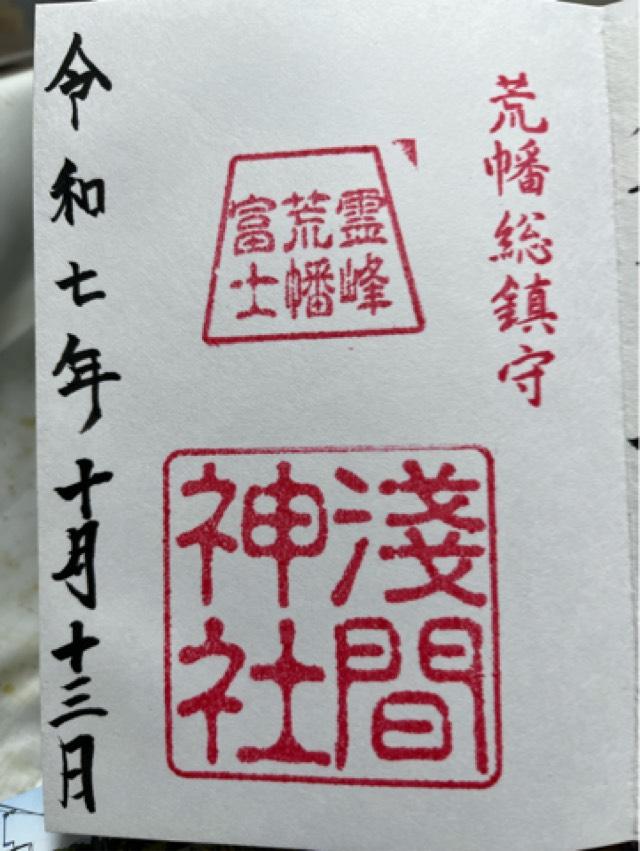 荒幡総鎮守
霊峰
荒幡
富士
淺間
神社
令和七年十月十三日